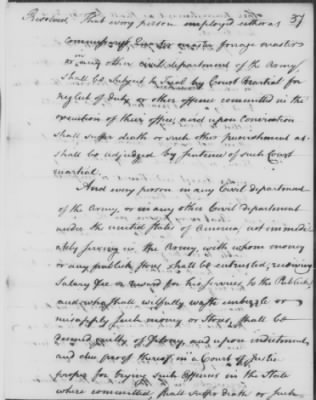 37
Resolved, That every person employed either as
commissary, Quarter master forage masters
or, any other civil department of the Army
shall be subject to Trial by Court Martial for
neglect of duty or other offence committed in the
execution of their office, and upon Conviction
shall suffer death or such other punishment as
shall be adjudged by sentence of such Court
martial.
And every person in any Civil department
of the Army, or in any other Civil department
under the united States of America, not immedi
ately serving in the Army, with whom money
or any publick Stores shall be entrusted, receiving
Salary fee or reward for his services to the Publick,
and who shall wilfully waste embezzle or
misapply such money or Stores, shall be
deemed guilty of felony, and upon indictment,
and due proof thereof in a Court of Justice
proper for trying such offences in the State
where committed shall suffer death or such